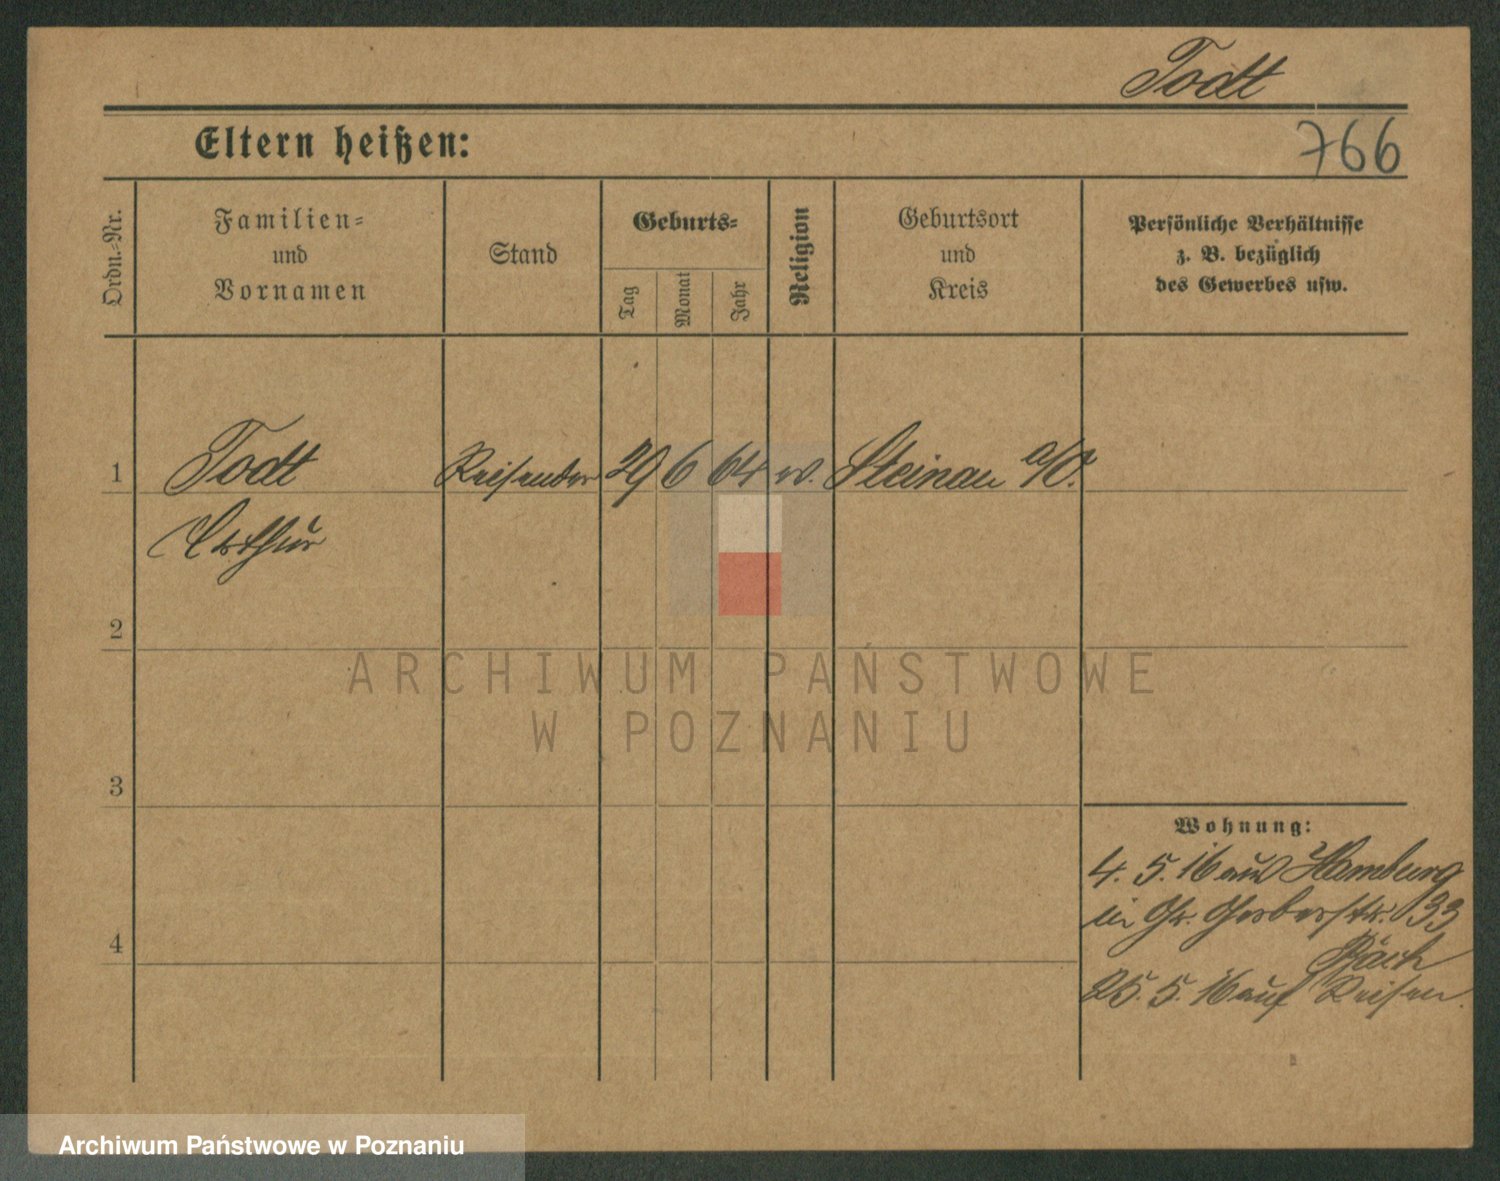 Todt
Eltern heißen:
766
Ordn.-Nr.
Familien-
und
Vornamen
Stand
Geburts-
Tag
Monat
Jahr
Religion
Geburtsort
und
Kreis
Persönliche Verhältnisse
z. B. bezüglich
des Gewerbes usw.
1 Todt Reisender 29 6 64 Steinau a/O.
Arthur
2
3
4
Wohnung:
4. 5. 16 aus Hamburg
in Gr. Gerberstr. 33
25. 5. 16 auf Reisen.
ARCHIWUM PAŃSTWOWE
W POZNANIU
Archiwum Państwowe w Poznaniu